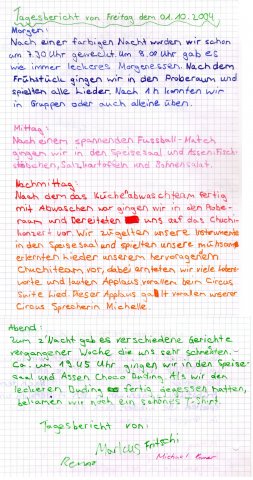 Tagesbericht von Freitag dem 01.10.2004
Morgen:
Nach einer farbigen Nacht wurden wir schon
um 7.30 Uhr geweckt. Um 8.00 Uhr gab es
wie immer leckeres Morgenessen. Nach dem
Frühstück gingen wir in den Proberaum und
spielten alle Lieder. Nach 1h konnten wir
in Gruppen oder auch alleine üben.
Mittag:
Nach einem spannenden Fussball-Match
gingen wir in den Speisesaal und Assen Fisch-
stäbchen, Salzkartofleln und Bohnensalat.
Nachmittag:
Nach dem das Küche abwaschteam fertig
mit Abwaschen war gingen wir in den Probe-
raum und Bereiteten uns auf das Chuchi-
konzert vor. Wir zügelten unsere Instrumente
in den Speisesaal und spielten unsere mühsam
erlernten Lieder unserem hervoragenem
Chuchiteam vor, dabei ernteten wir viele Lobes-
worte und lauten Applaus vorallem beim Circus
Suite Lied. Dieser Applaus galt vorallem unserer
Circus Sprecherin Michelle.
Abend:
Zum z'Nacht gab es verschiedene Gerichte
vergangener Woche die uns sehr schmekten.
Ca. um 19.45 Uhr gingen wir in den Speise-
saal und Assen Choco Puding. Als wir den
leckeren Puding fertig gegessen hatten,
bekamen wir noch ein schönes T-Shirt.
Tagesbericht von:
Markus Fritschi
Michael